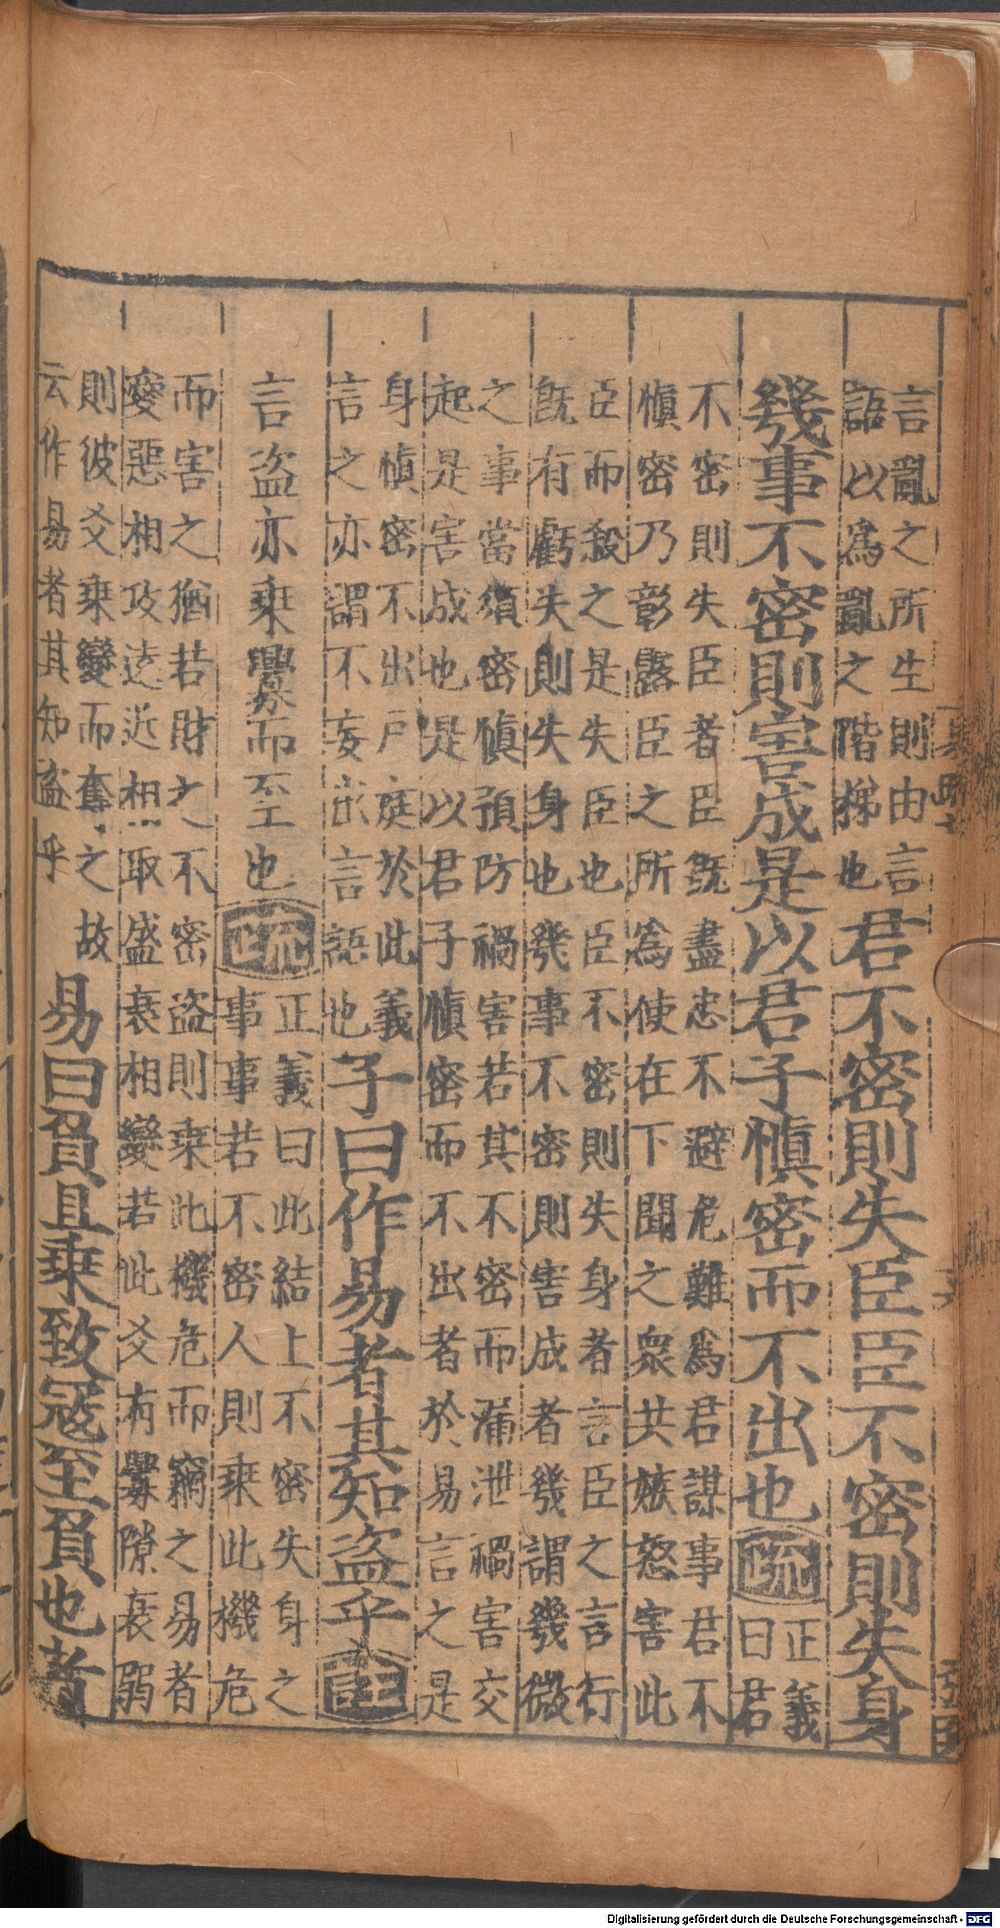 言亂之所生則由言
語以為亂之階梯也
君不密則失臣臣不密則失身
幾事不密則害成是以君子慎密而不出也
疏
正義
曰君
不密則失臣者臣既盡忠不避危難為君謀事君不
慎密乃彰露臣之所為使在下聞之衆共嫉怒害此
臣而殺之是失臣也臣不密則失身者言臣之言行
既有虧失則失身也幾事不密則害成者幾謂幾微
之事當須密慎預防禍害若其不密而漏泄禍害交
起是害成也是以君子慎密而不出者於易言之是
身慎密不出戶庭於此義
言之亦謂不妄出言語也
子曰作易者其知盜乎
註
言盜亦乘釁而至也
疏
正義曰此結上不密失身之
事事若不密人則乘此機危
而害之猶若財之不密盜則乘此機危而竊之易者
愛惡相攻遠近相取盛衰相變若此爻有釁隙衰弱
則彼爻乘變而奪之故
云作易者其知盜乎
易曰負且乘致寇至負也者
Digitalisierung gefördert durch die Deutsche Forschungsgemeinschaft - DFG